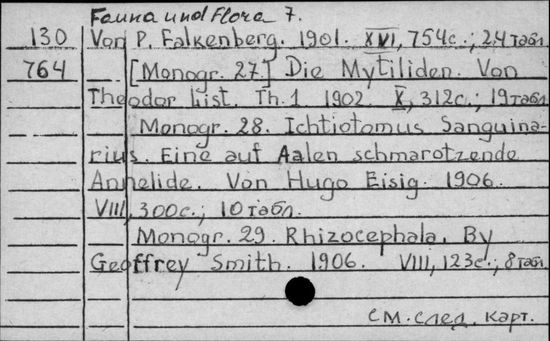 Fauna und Flora 7.
130 Von P. Falkenberg. 1901. XVI, 754с.; 24 табл.
764 [Monogr. 27.] Die Mytiliden. Von
Theodor List. Th. 1 1902 X, 312с.; 19 табл.
Monogr. 28. Ichtiotomus Sanguina-
rius. Eine auf Aalen schmarotzende
Annelide. Von Hugo Eisig. 1906.
VIII, 300с.; 10 табл.
Monogr. 29. Rhizocephala. By
Geoffrey Smith. 1906. VIII, 123с.; 8 табл.
См. след. карт.